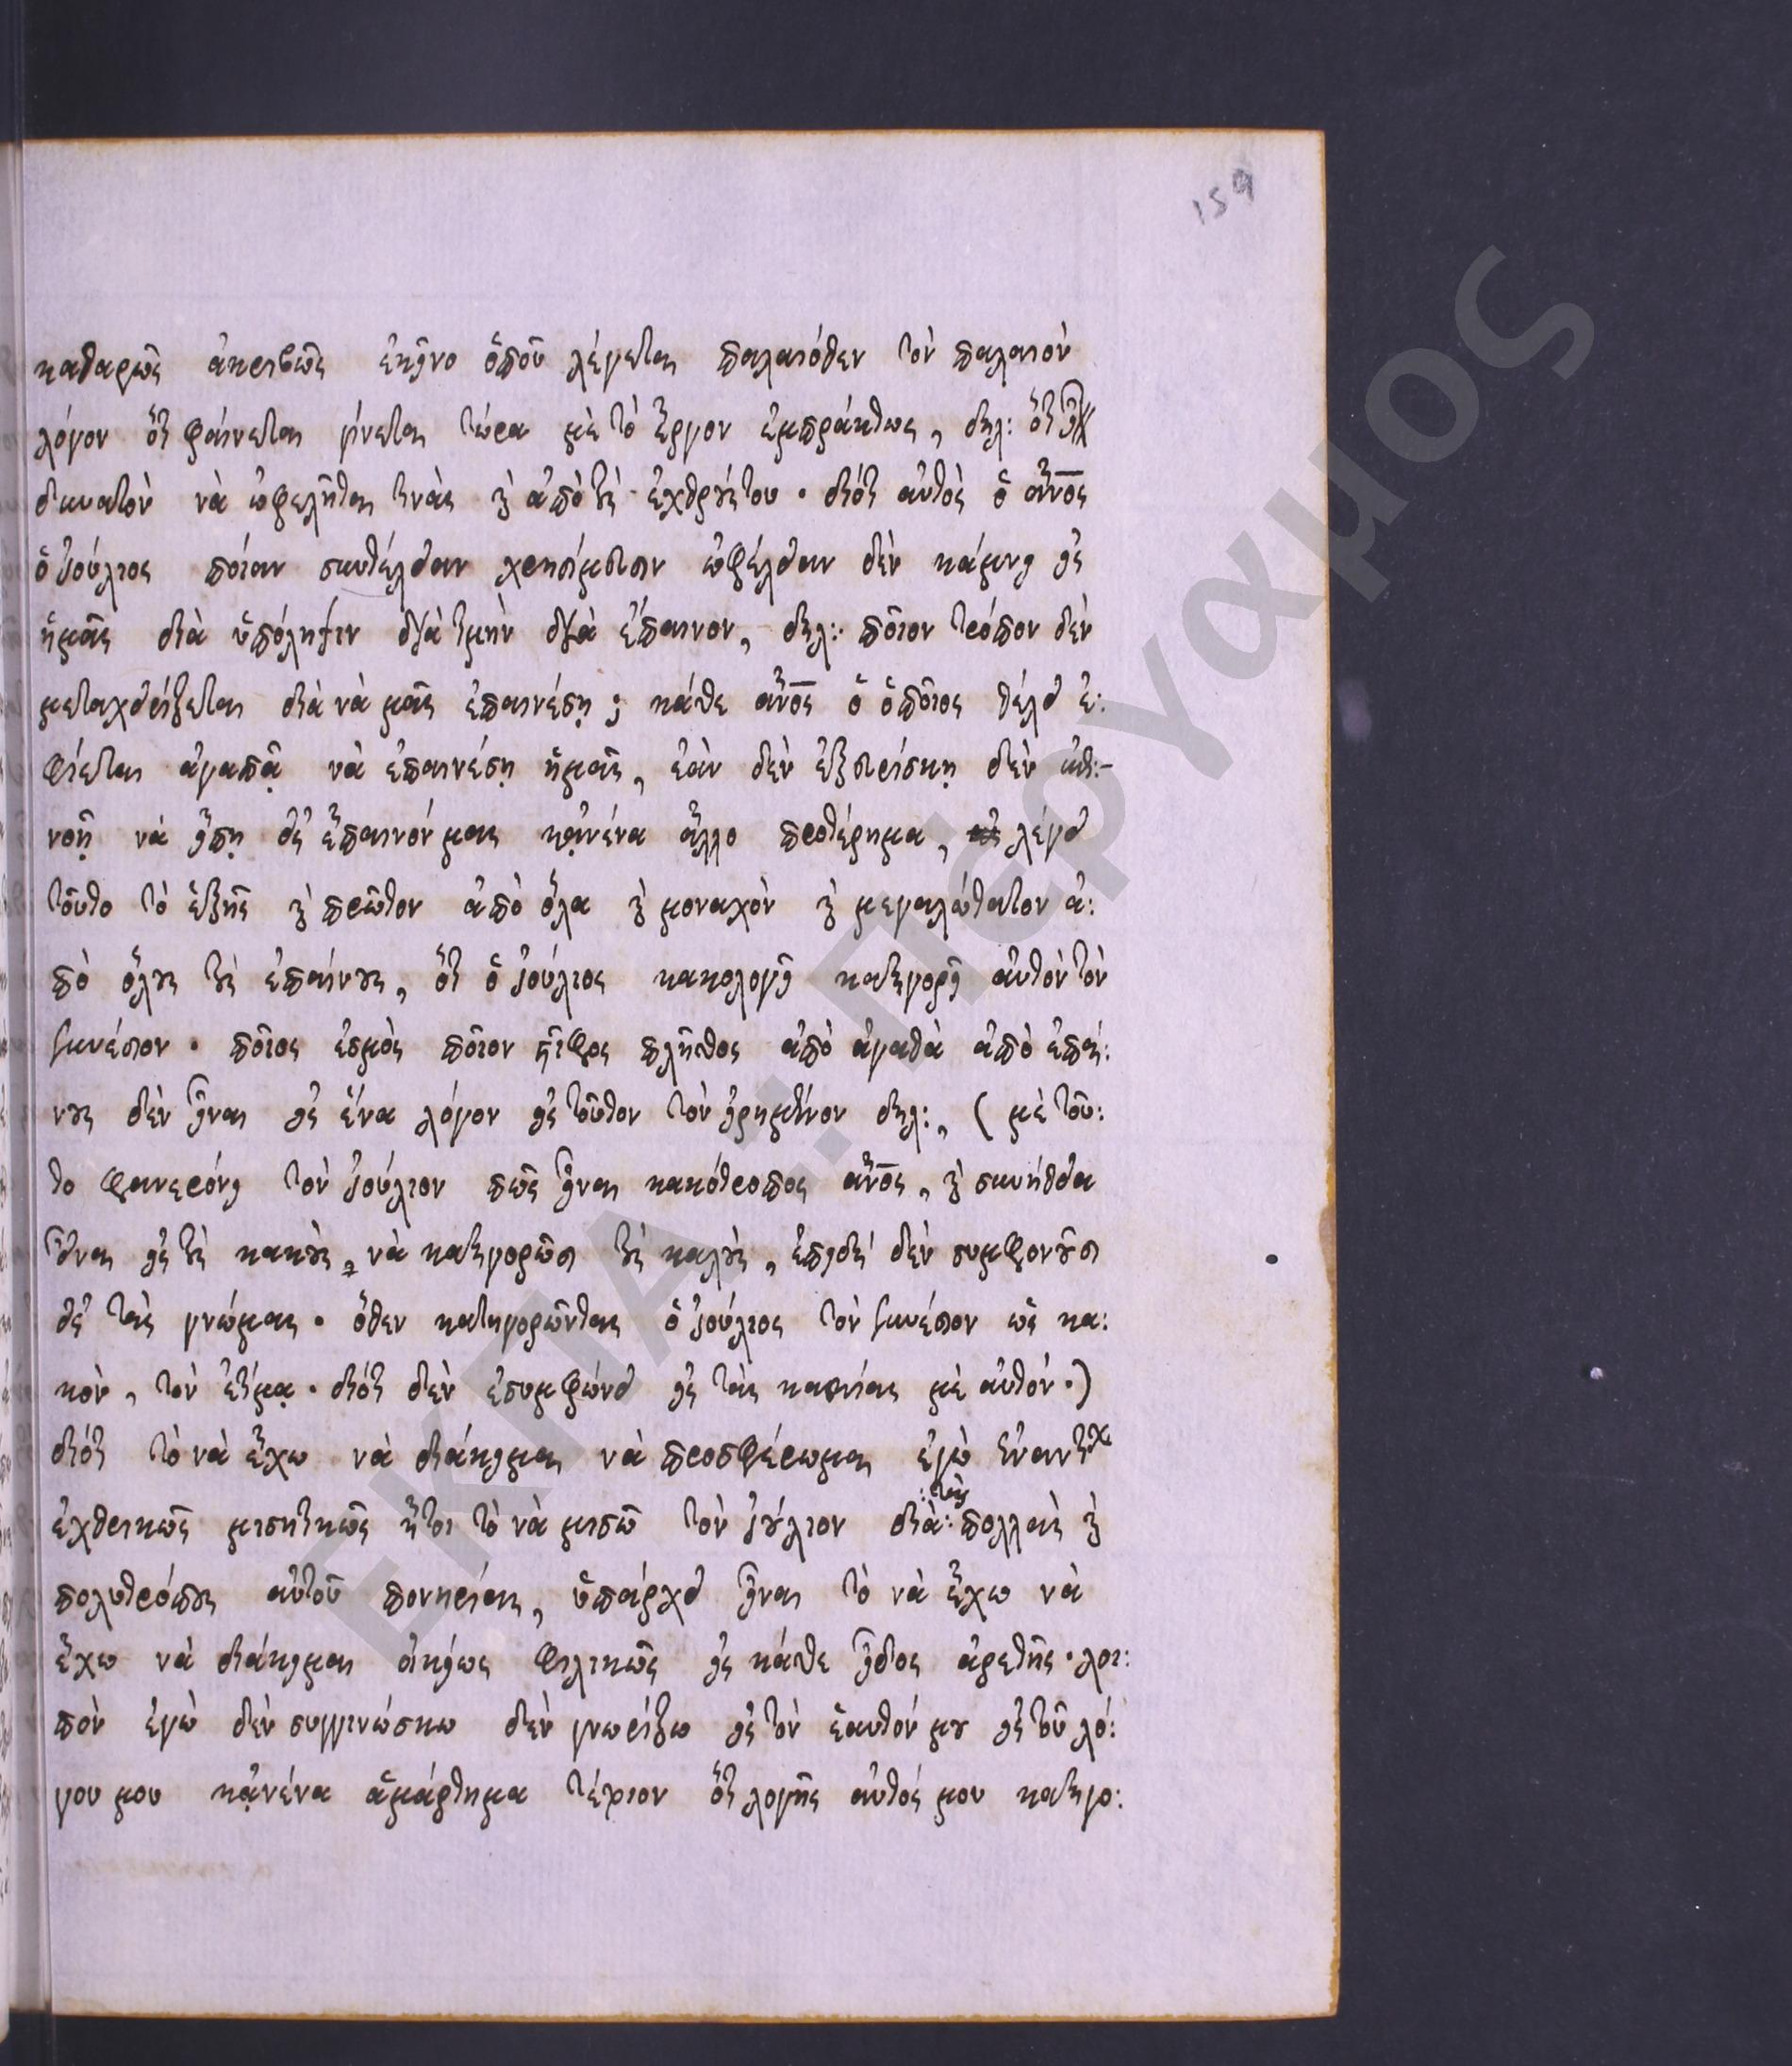 159
καθαρῶς ἀκριβῶς ἐκεῖνο ὁποῦ λέγεται παλαιόθεν τὸν παλαιὸν
λόγον ὅτι φαίνεται γίνεται τώρα μὲ τὸ ἔργον ἐμπράκτως, δηλ: ὅτι
δυνατὸν νὰ ὠφελῆται τινὰς ϗ ἀπὸ τὲς ἐχθρούς του · διότι αὐτὸς ὁ ἄνος
ὁ ἰούλιος ποίαν συντέλειαν χρησίμευσιν ὠφέλειαν δὲν κάμνει εἰς
ἡμᾶς διὰ ὑπόληψιν διὰ τιμὴν διὰ ἔπαινον, δηλ: ποῖον τρόπον δὲν
μεταχειρίζεται διὰ νὰ μᾶς ἐπαινέσῃ; κάθε ἄνος ὁ ὁποῖος θέλει ἐ:
φίεται ἀγαπᾷ νὰ ἐπαινέσῃ ἡμᾶς, ἐὰν δὲν ἐξευρίσκῃ δὲν
νοῇ νὰ εἴπῃ εἰς ἔπαινόν μας κᾀνένα ἄλλο προτέρημα, λέγει
τοῦτο τὸ ἑξῆς ϗ πρῶτον ἀπὸ ὅλα ϗ μοναχὸν ϗ μεγαλώτατον ἀ:
πὸ ὅλους τὲς ἐπαίνους, ὅτι ὁ ἰούλιος κακολογεῖ κατηγορεῖ αὐτὸν τὸν
συνέσιον · ποῖος ἐσμὸς ποῖον πλῆθος ἀπὸ ἀγαθὰ ἀπὸ ἐπαί:
νους δὲν εἶναι εἰς ἕνα λόγον εἰς τοῦτον τὸν εἰρημένον δηλ:, (μὲ τοῦ:
το φανερόνει τὸν ἰούλιον πῶς εἶναι κακότροπος ἄνος, ϗ συνήθεια
εἶναι εἰς τὲς κακοὺς, νὰ κατηγορῶσι τὲς καλοὺς, ἐπειδὴ δὲν συμφονοῦσι
εἰς τὰς γνώμας · ὅθεν κατηγορῶντας ὁ ἰούλιος τὸν συνέσιον ὡς κα:
κὸν, τὸν ἐτίμα · διότι δὲν ἐσυμφώνει εἰς τὰς κακίας μὲ αὐτόν ·)
διότι τὸ νὰ ἔχω νὰ διάκειμαι νὰ προσφέρωμαι ἐγὼ
ἐχθρικῶς μισητικῶς ἤτοι τὸ νὰ μισῶ τὸν ἰούλιον διὰ: :τὰς πολλαὶς ϗ
πολυτρόπους αὐτοῦ πονηρίας, ὑπάρχει εἶναι τὸ νὰ ἔχω νὰ
ἔχω νὰ διάκειμαι οἰκείως φιλικῶς εἰς κάθε εἶδος ἀρετῆς · λοι:
πὸν ἐγὼ δὲν συγγινώσκω δὲν γνωρίζω εἰς τὸν ἑαυτόν μου εἰς τοῦ λό:
γου μου κᾀνένα ἁμάρτημα τέτοιον ὅτι λογῆς αὐτός μου κατηγο:
ΕΚΠΑ.:Πέργαμος